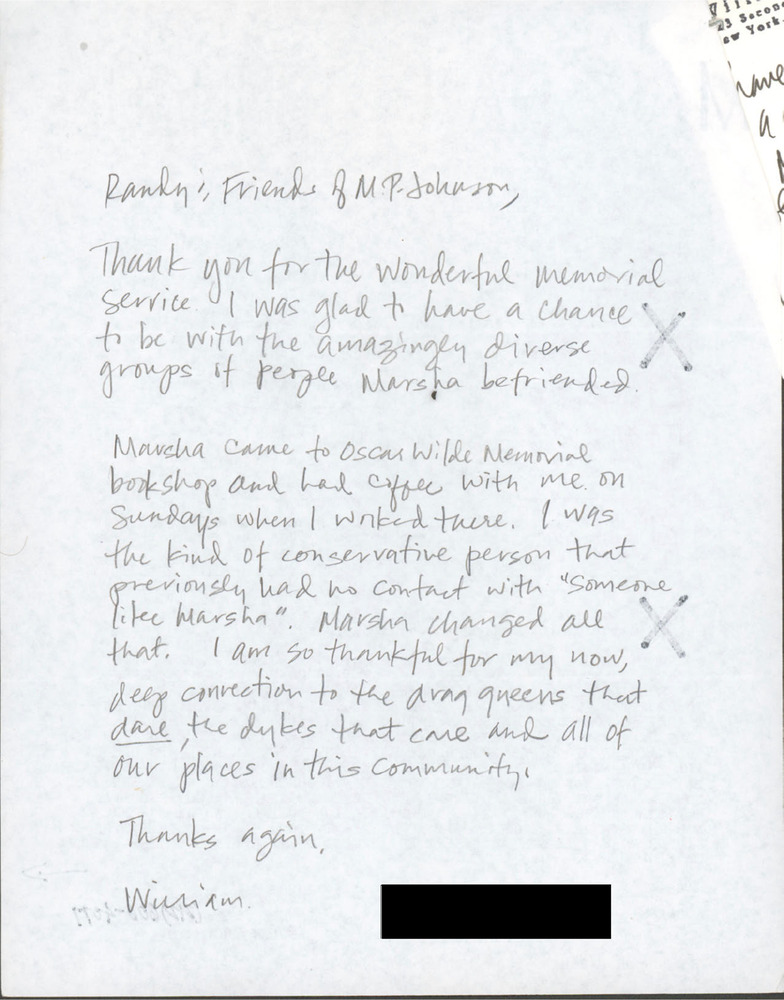 Randy & Friends of M.P. Johnson,
Thank you for the wonderful memorial
service. I was glad to have a chance
to be with the amazingly diverse
groups of people Marsha befriended.
Marsha came to Oscar Wilde Memorial
bookshop and had coffee with me on
Sundays when I worked there. I was
the kind of conservative person that
previously had no contact with "someone
like Marsha". Marsha changed all
that. I am so thankful for my now,
deep connection to the drag queens that
dare, the dykes that care and all of
our places in this community.
Thanks again,
William.
23 Second
New York
have
a